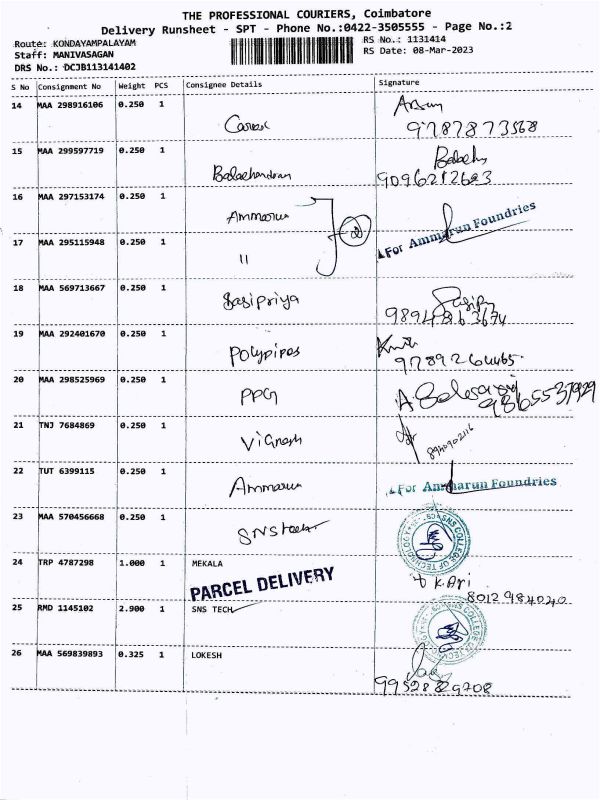 THE PROFESSIONAL COURIERS, Coimbatore
Delivery Runsheet - SPT - Phone No.:0422-3505555 - Page No.:2
Route: KONDAYAMPALAYAM
RS No.: 1131414
Staff: MANIVASAGAN
RS Date: 08-Mar-2023
DRS No.: DCJB113141402
S No Consignment No Weight PCS Consignee Details Signature
14 MAA 298916106 0.250 1
9787873568
15 MAA 299597719 0.250 1 Balachandran
9096212683
16 MAA 297153174 0.250 1 Ammarun
For Ammarun Foundries
17 MAA 295115948 0.250 1 11
18 MAA 569713667 0.250 1 Sasipriya
9894863674
19 MAA 292401670 0.250 1 Polypipes
9789264465
20 MAA 298525969 0.250 1 PPG
9865537929
21 TNJ 7684869 0.250 1 Vignesh
8940902116
22 TUT 6399115 0.250 1 Ammarun
For Ammarun Foundries
23 MAA 570456668 0.250 1 SNS tech
SNS COLLEGE OF TECHNOLOGY
24 TRP 4787298 1.000 1 MEKALA
PARCEL DELIVERY
8012984040
25 RMD 1145102 2.900 1 SNS TECH
SNS COLLEGE OF TECHNOLOGY
26 MAA 569839893 0.325 1 LOKESH
9952889708